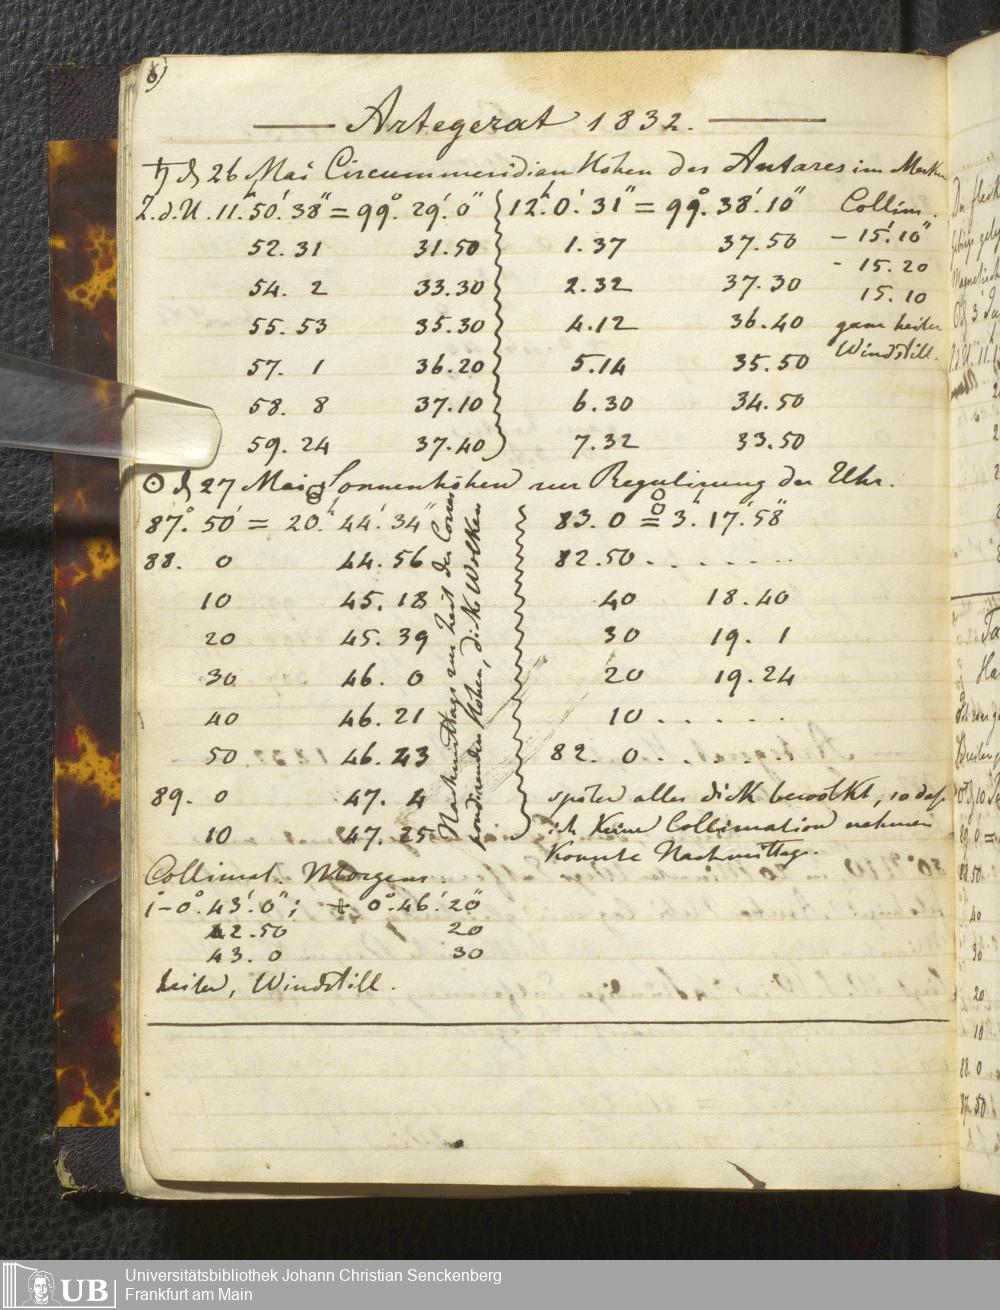 6)
Artegerat 1832.
♄ d 26 Mai Circummeridian Höhen des Antares im Merken
Z.d.U. 11ʰ.50'.38" = 99°.29'.0"
52.31 31.50
54. 2 33.30
55.53 35.30
57. 1 36.20
58. 8 37.10
59.24 37.40
12ʰ.0'.31" = 99°.38'.10"
1.37 37.50
2.32 37.30
4.12 36.40
5.14 35.50
6.30 34.50
7.32 33.50
Collim.
- 15'.10"
- 15.20
15.10
ganz heiter
Windstill.
☉ d 27 Mai Sonnenhöhen zur Regulirung der Uhr.
87°.50' = 20ʰ.44'.34"
88. 0 44.56
10 45.18
20 45.39
30 46. 0
40 46.21
50 46.43
89. 0 47. 4
10 47.25
Nachmittags zur Zeit der Corres
pondirenden Höhen, dicke Wolken
83. 0 = 3ʰ.17'.58"
82.50 . . . . . . .
40 18.40
30 19. 1
20 19.24
10 . . . . . .
82. 0 . . .
später alles dick bewölkt, so dass
ich keine Collimation nehmen
konnte Nachmittags.
Collimat. Morgens.
- 0°.43'.0"; + 0°.46'.20"
42.50 20
43. 0 30
heiter, Windstill.
UB
Universitätsbibliothek Johann Christian Senckenberg
Frankfurt am Main